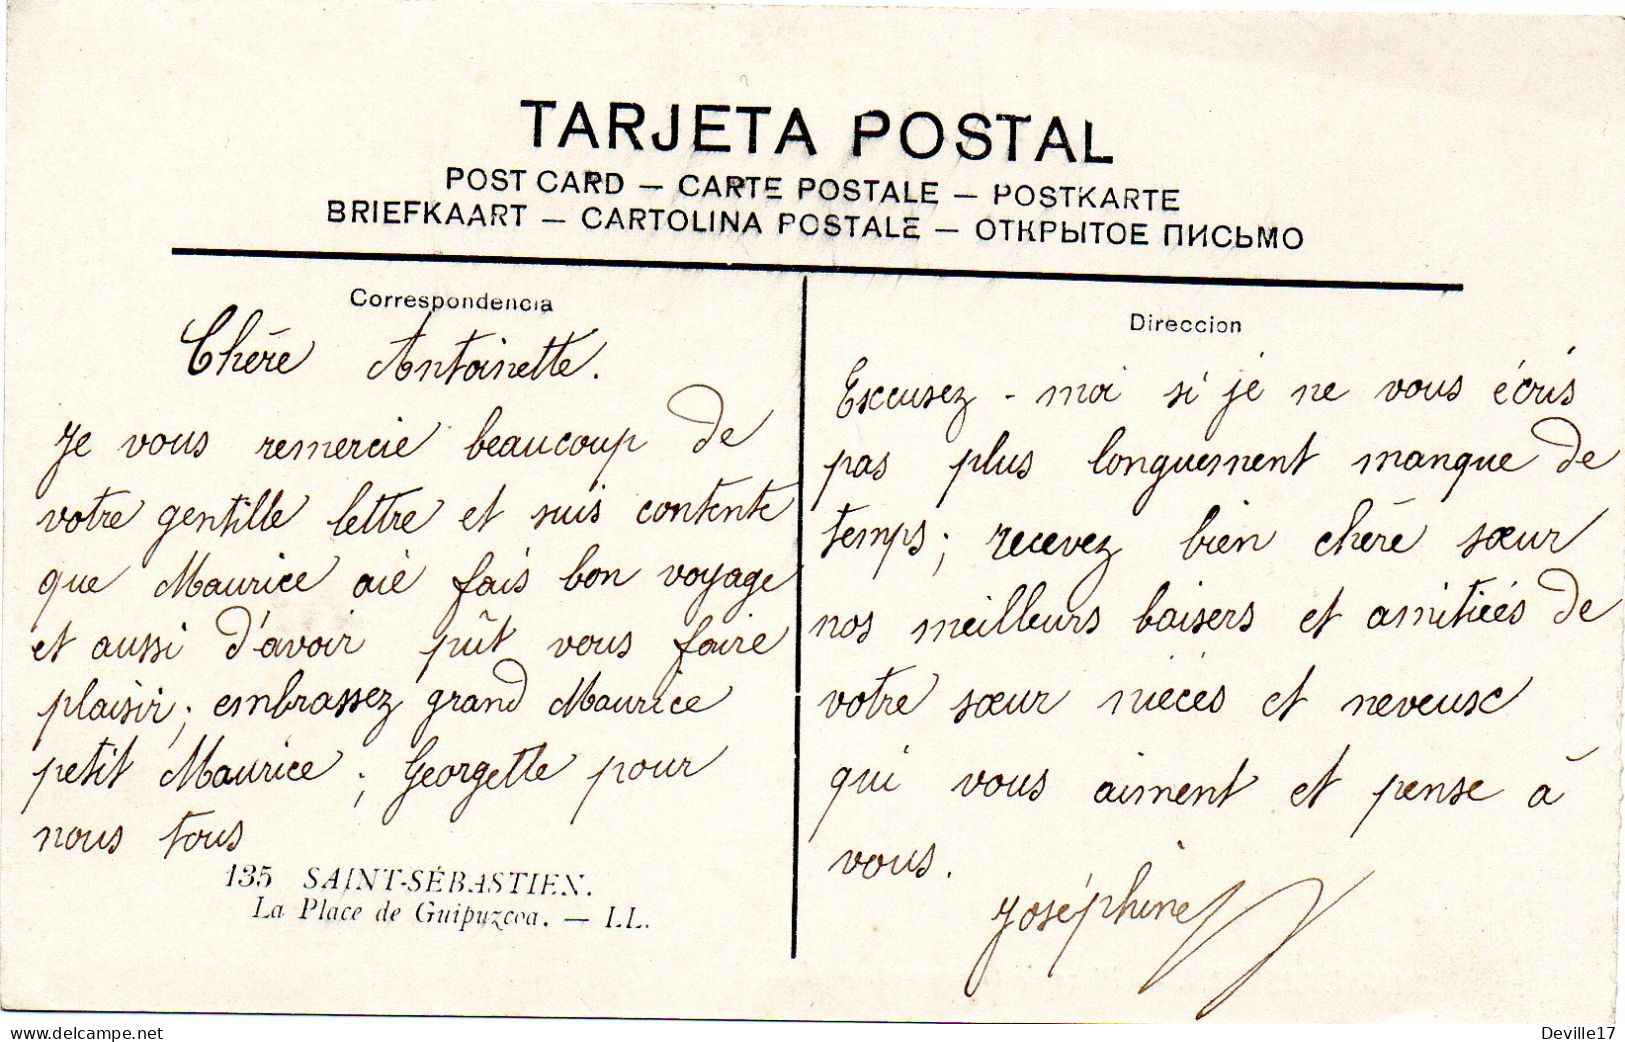 TARJETA POSTAL
POST CARD — CARTE POSTALE — POSTKARTE
BRIEFKAART — CARTOLINA POSTALE — ОТКРЫТОЕ ПИСЬМО
Correspondencia
Chère Antoinette.
Je vous remercie beaucoup de
votre gentille lettre et suis contente
que Maurice aie fais bon voyage
et aussi d'avoir pût vous faire
plaisir; embrassez grand Maurice
petit Maurice; Georgette pour
nous tous
135 SAINT-SÉBASTIEN.
La Place de Guipuzcoa. — LL.
Direccion
Excusez-moi si je ne vous écris
pas plus longuement manque de
temps; recevez bien chère sœur
nos meilleurs baisers et amitiées de
votre sœur nièces et neveux
qui vous aiment et pense à
vous.
Joséphine
www.delcampe.net
Deville17